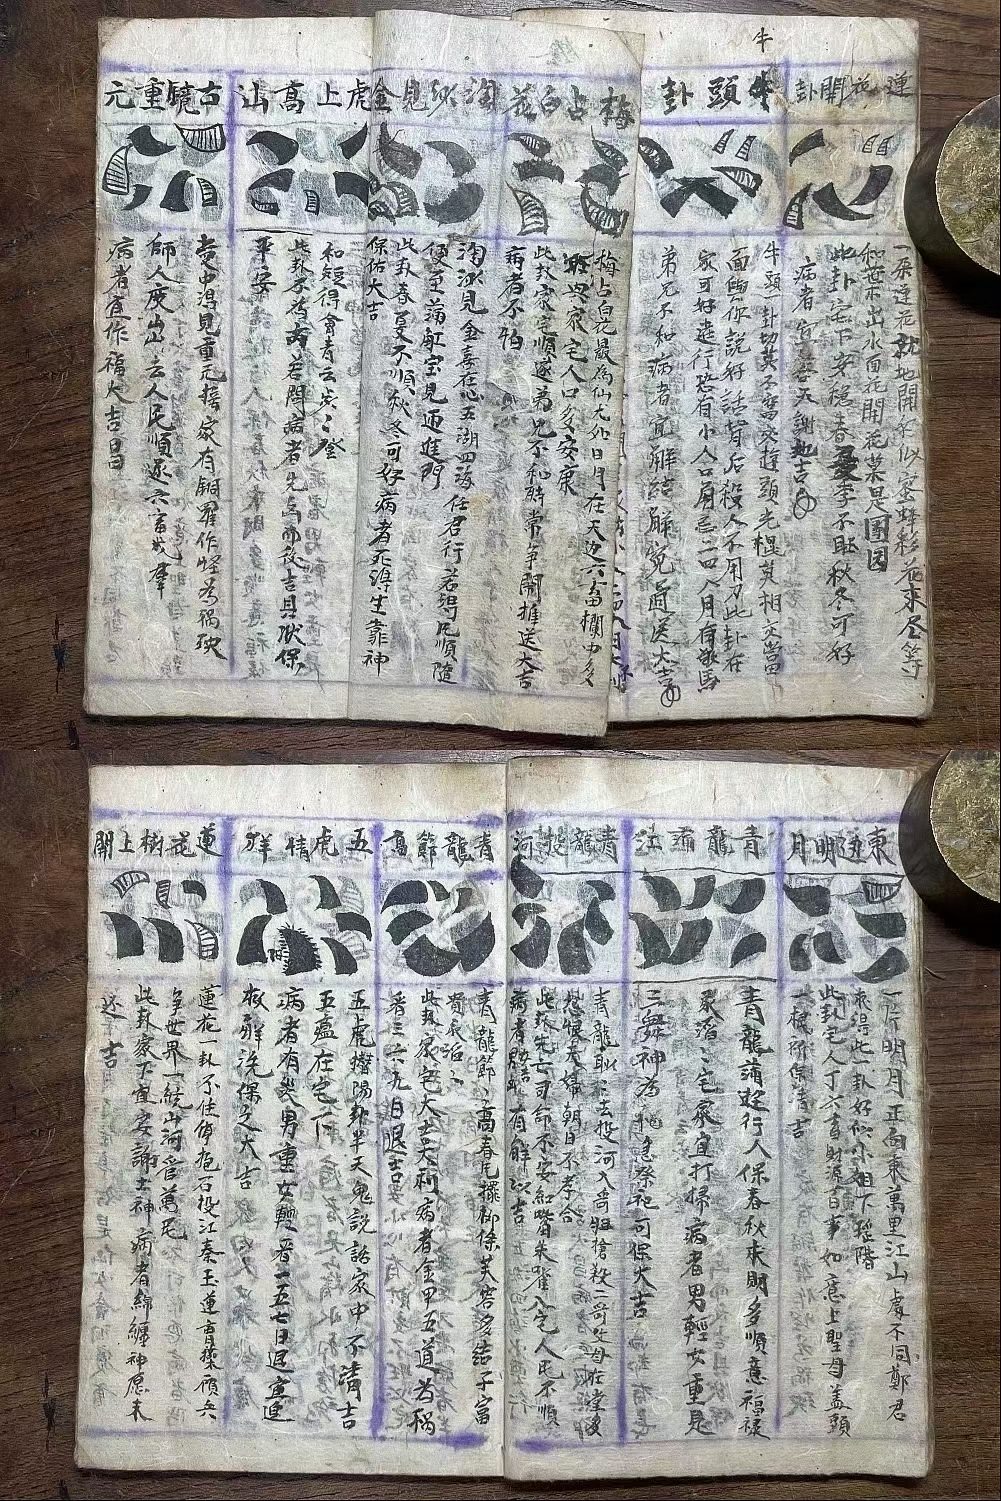 牛
蓮花開卦
一朵蓮花就地開好似蜜蜂彩花來尽等
和世界出水面花開花菓是团园
此卦宅下安穩春夏季不旺秋冬可好
病者宜答天謝地吉
牛頭卦
牛頭一卦切莫不當災難頭光棍莫相交當
面與你說好話背后殺人不用刀此卦在
家可好遠行恐有小人口角忌二四人月有敬馬
弟兄不和病者宜解結解冤送大吉
梅占白花
梅占白花最為仙大如日月在天边六畜欄中多
旺與家宅人口多安康
此卦家宅順遂弟兄不和時常爭鬧推送大吉
病者不怕
淘沙見金
淘沙見金喜在心五湖四海任君行君問凡順隨
便至滿船宝見通進門
此卦春夏不順秋冬可好病者死得生靠神
保佑大吉
虎上高山
和短得會青云步〻登
此卦子有若問病者先而後吉具狀保
平安
古鏡重元
壹中得見重元接家有銅羅作怪為禍殃
師人度出去人民順遂六畜成羣
病者宜作福大吉昌
東边明月
一片明月正向東萬里江山處不同鄭君
求得此一卦好似小姐下瑤階
此卦宅人丁六畜財源百事如意上聖母蓋頭
一樣祈保清吉
青龍蒲江
青龍蒲江行人保春秋來期多順意福祿
來落〻宅家宜打掃病者男輕女重是
三舞神為禍急祭祀可保大吉
青龍投河
青龍耿〻去投河入哥姐搶殺二哥父母在堂淚
想恨夫婦朝日不孝合
此卦先亡司命不安紅嘴朱雀入宅人民不順
病者賠賠有解以吉
青龍節高
青龍節〻高春尾擺柳條芙蓉多結子富
貴長滔〻
此卦家宅大吉大利病者金甲五道為禍
看三六九日退吉
五虎情鮮
五虎攔陽卦半天鬼說話家中不清吉
五瘟在宅下
病者有災男重女輕看一五七日退宜進
表解洗保之大吉
蓮花樹上開
蓮花一卦不住停抱石投江秦玉蓮曹操領兵
爭世界一統山河管萬民
此卦家下宜安謝土神病者綿纏神愿未
还吉